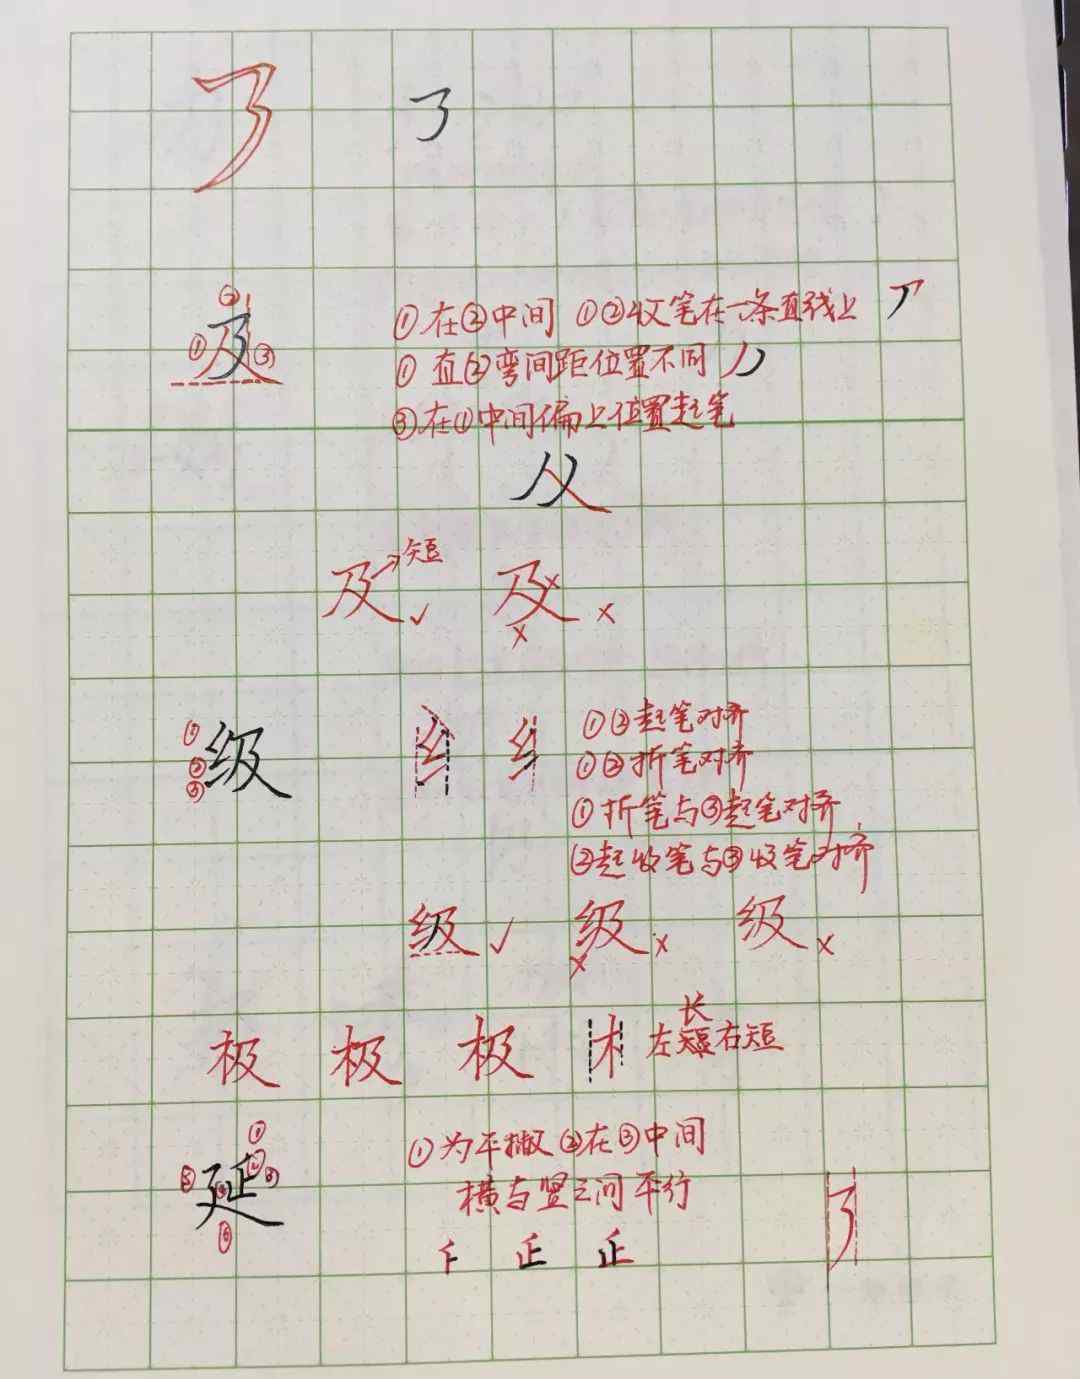 ② 1
①及③
①在②中间 ①②收笔在一条直线上
①直②弯间距位置不同
③在①中间偏上位置起笔
及 短 及
①②③级
①②起笔对齐
①②折笔对齐
①折笔与③起笔对齐,
②起收笔与③收笔对齐
级 级 级
长
极 极 极 左短右短
①
②
⑤延③
⑥
①为平撇②在③中间
横与竖之间平行